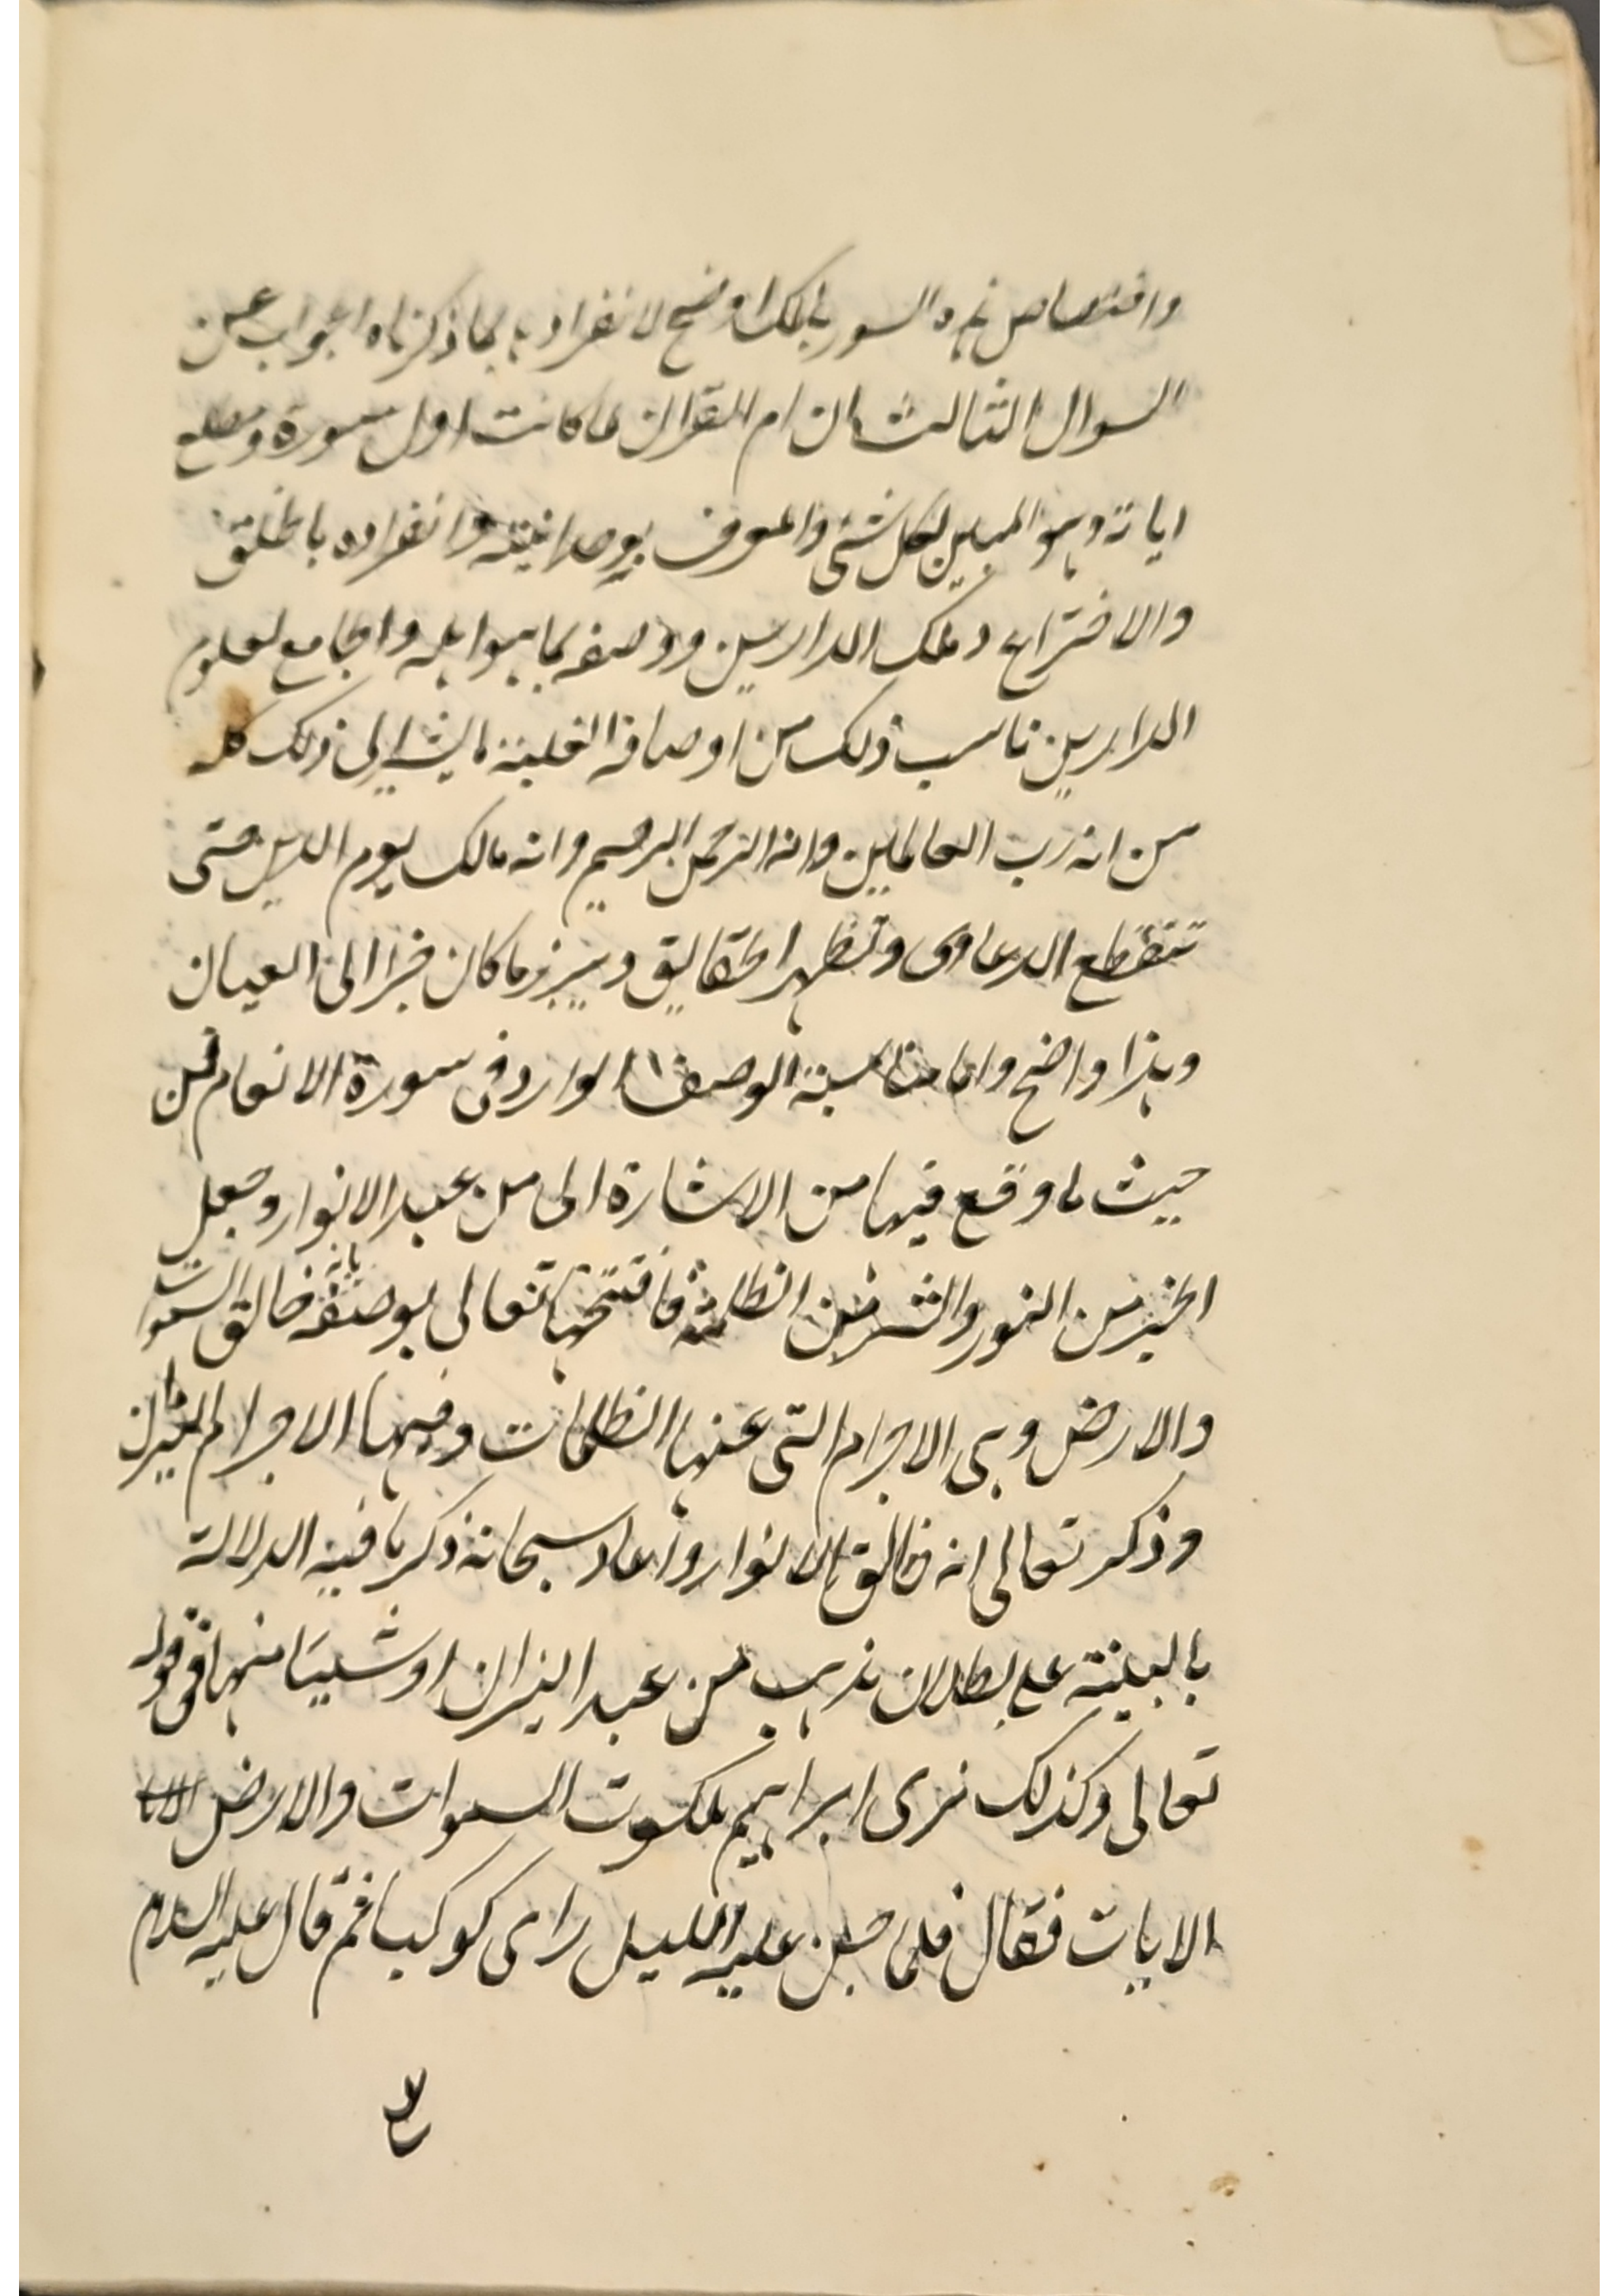 واختصاص هذه السور بالحكم اوضح لانفرادها بما ذكرناه الجواب عن
السوال الثالث ان ام القران لما كانت اول سورة ومطلع
اياته وهو المبين لكل شئ والمعرف بوحدانيته وانفراده بالخلق
والاختراع وملك الدارين ووصفه بما هو اهله والجامع لعلوم
الدارين ناسب ذلك من اوصافه العلية ما يشير الى ذلك كله
من انه رب العالمين وانه الرحمن الرحيم وانه مالك يوم الدين حتى
تنقطع الدعاوى وتظهر الحقايق ويبرز ما كان خبرا الى العيان
وهذا واضح واما مناسبة الوصف الوارد فى سورة الانعام فمن
حيث ما وقع فيها من الاشارة الى من عبد الانوار وجعل
الخير من النور والشر من الظلمة فافتتحها تعالى بوصفه بانه خالق السموات
والارض وهى الاجرام التى عنها الظلمات وفيها الاجرام النيرات
وذكر تعالى انه خالق الانوار واعاد سبحانه ذكر ما فيه الدلالة
بالبينة على بطلان مذهب من عبد النيران او شيئا منها فى قوله
تعالى وكذلك نرى ابراهيم ملكوت السموات والارض
الايات فقال فلما جن عليه الليل راى كوكبا ثم قال عليه السلام